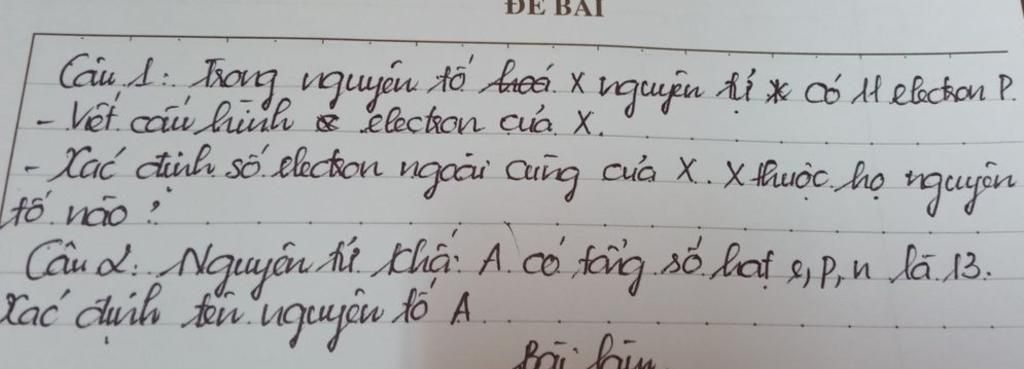 ĐỀ BÀI
Câu 1: Trong nguyên tố X nguyên tử có 11 electron P.
- Viết cấu hình electron của X.
- Xác định số electron ngoài cùng của X. X thuộc họ nguyên
tố nào?
Câu 2: Nguyên tử khối A có tổng số hạt e, p, n là 13.
Xác định tên nguyên tố A
Bài làm